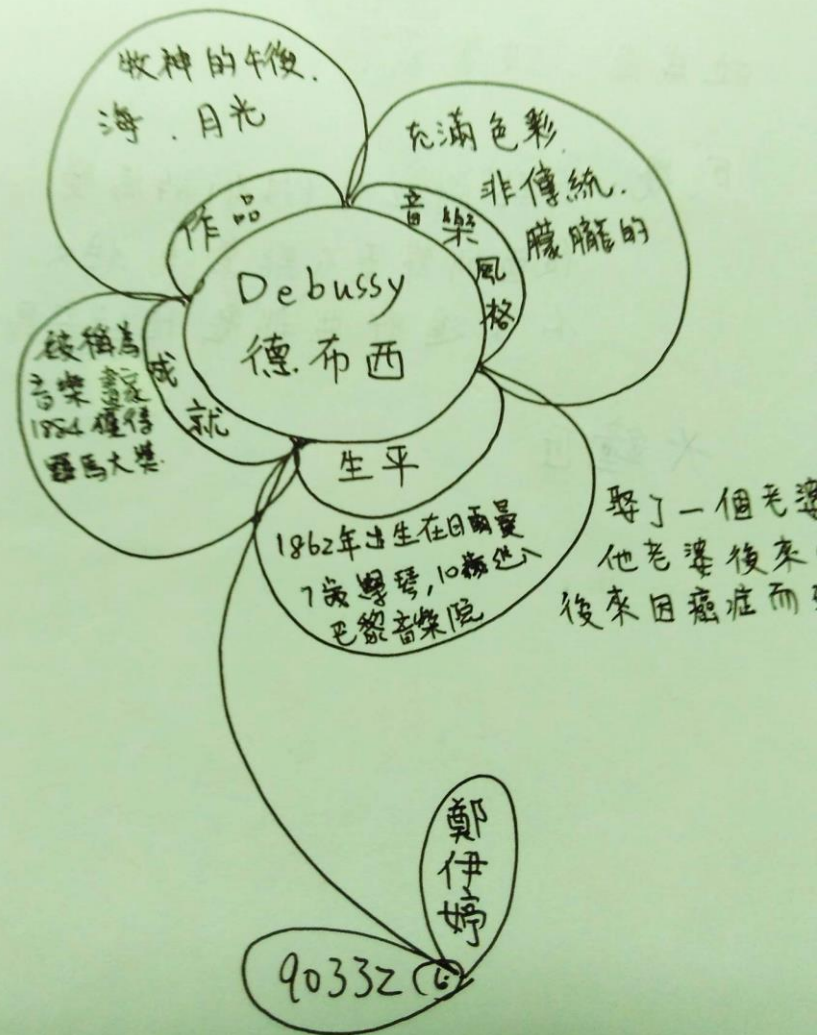 牧神的午後.
海 . 月光
作品
充滿色彩.
非傳統.
朦朧的
音樂風格
Debussy
德布西
成就
被稱為
音樂畫家
1884獲得
羅馬大獎
生平
1862年出生在日爾曼
7歲學琴,10歲進入
巴黎音樂院
娶了一個老婆
他老婆後來
後來因癌症而
鄭伊婷
90332